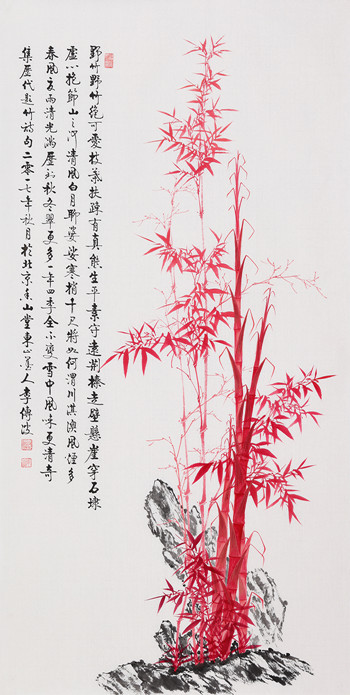 野竹野竹絶可愛枝葉扶疎有真態生平素守遠荊榛走壁懸崖穿石埭
虛心抱節山之河清風白月聊婆娑寒梢千尺將如何渭川淇澳風煙多
春風夏雨清光滿歷到秋冬翠更多一年四季全不變雪中風味更清奇
集歷代題竹詩句二零一七年秋月於北京香山堂東山人李傳波